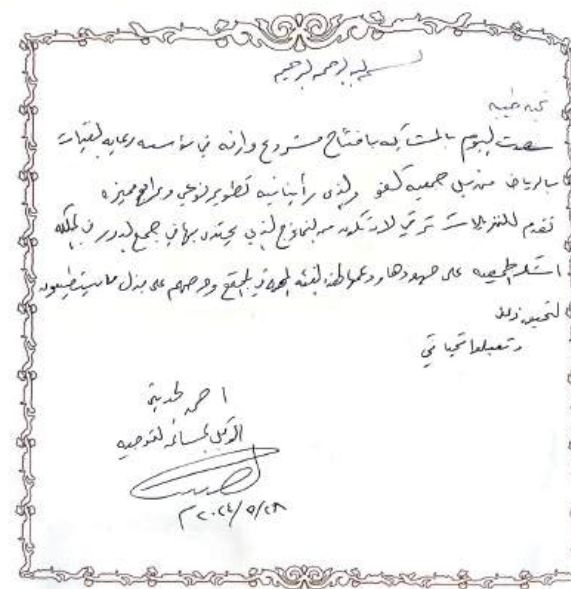 بسم الله الرحمن الرحيم
تحية طيبة
سعدت اليوم بالمشاركة بافتتاح مشروع وارفة في مؤسسة رعاية الفتيات
بالرياض من قبل جمعية والذي رأينا فيه تطوير نوعي وبرامج مميزة
تقدم للنزيلات ترتقي لان تكون من النماذج الذي يحتذى بها في جميع الدور في المملكة
اشكر الجمعية على جهودها ودعمها لهذه الفئة في المجتمع وحرصهم على بذل ما يستطيعون
لتحقيق ذلك
وتقبلوا تحياتي
الوكيل المساعد للتوجيه
٢٠٢٤/٥/٢٨ م